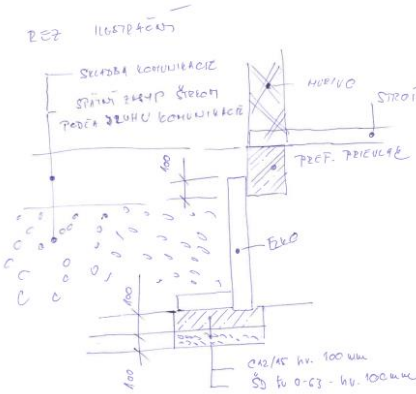 REZ ILUSTRAČNÝ
SKLADBA KOMUNIKÁCIE
SPÄTNÝ ZÁSYP ŠTRKOM
PODĽA DRUHU KOMUNIKÁCIE
MURIVO
STROJ
PREF. PRIEVLAK
100
100
100
C12/15 hr. 100 mm
ŠD fr 0-63 - hr. 100mm